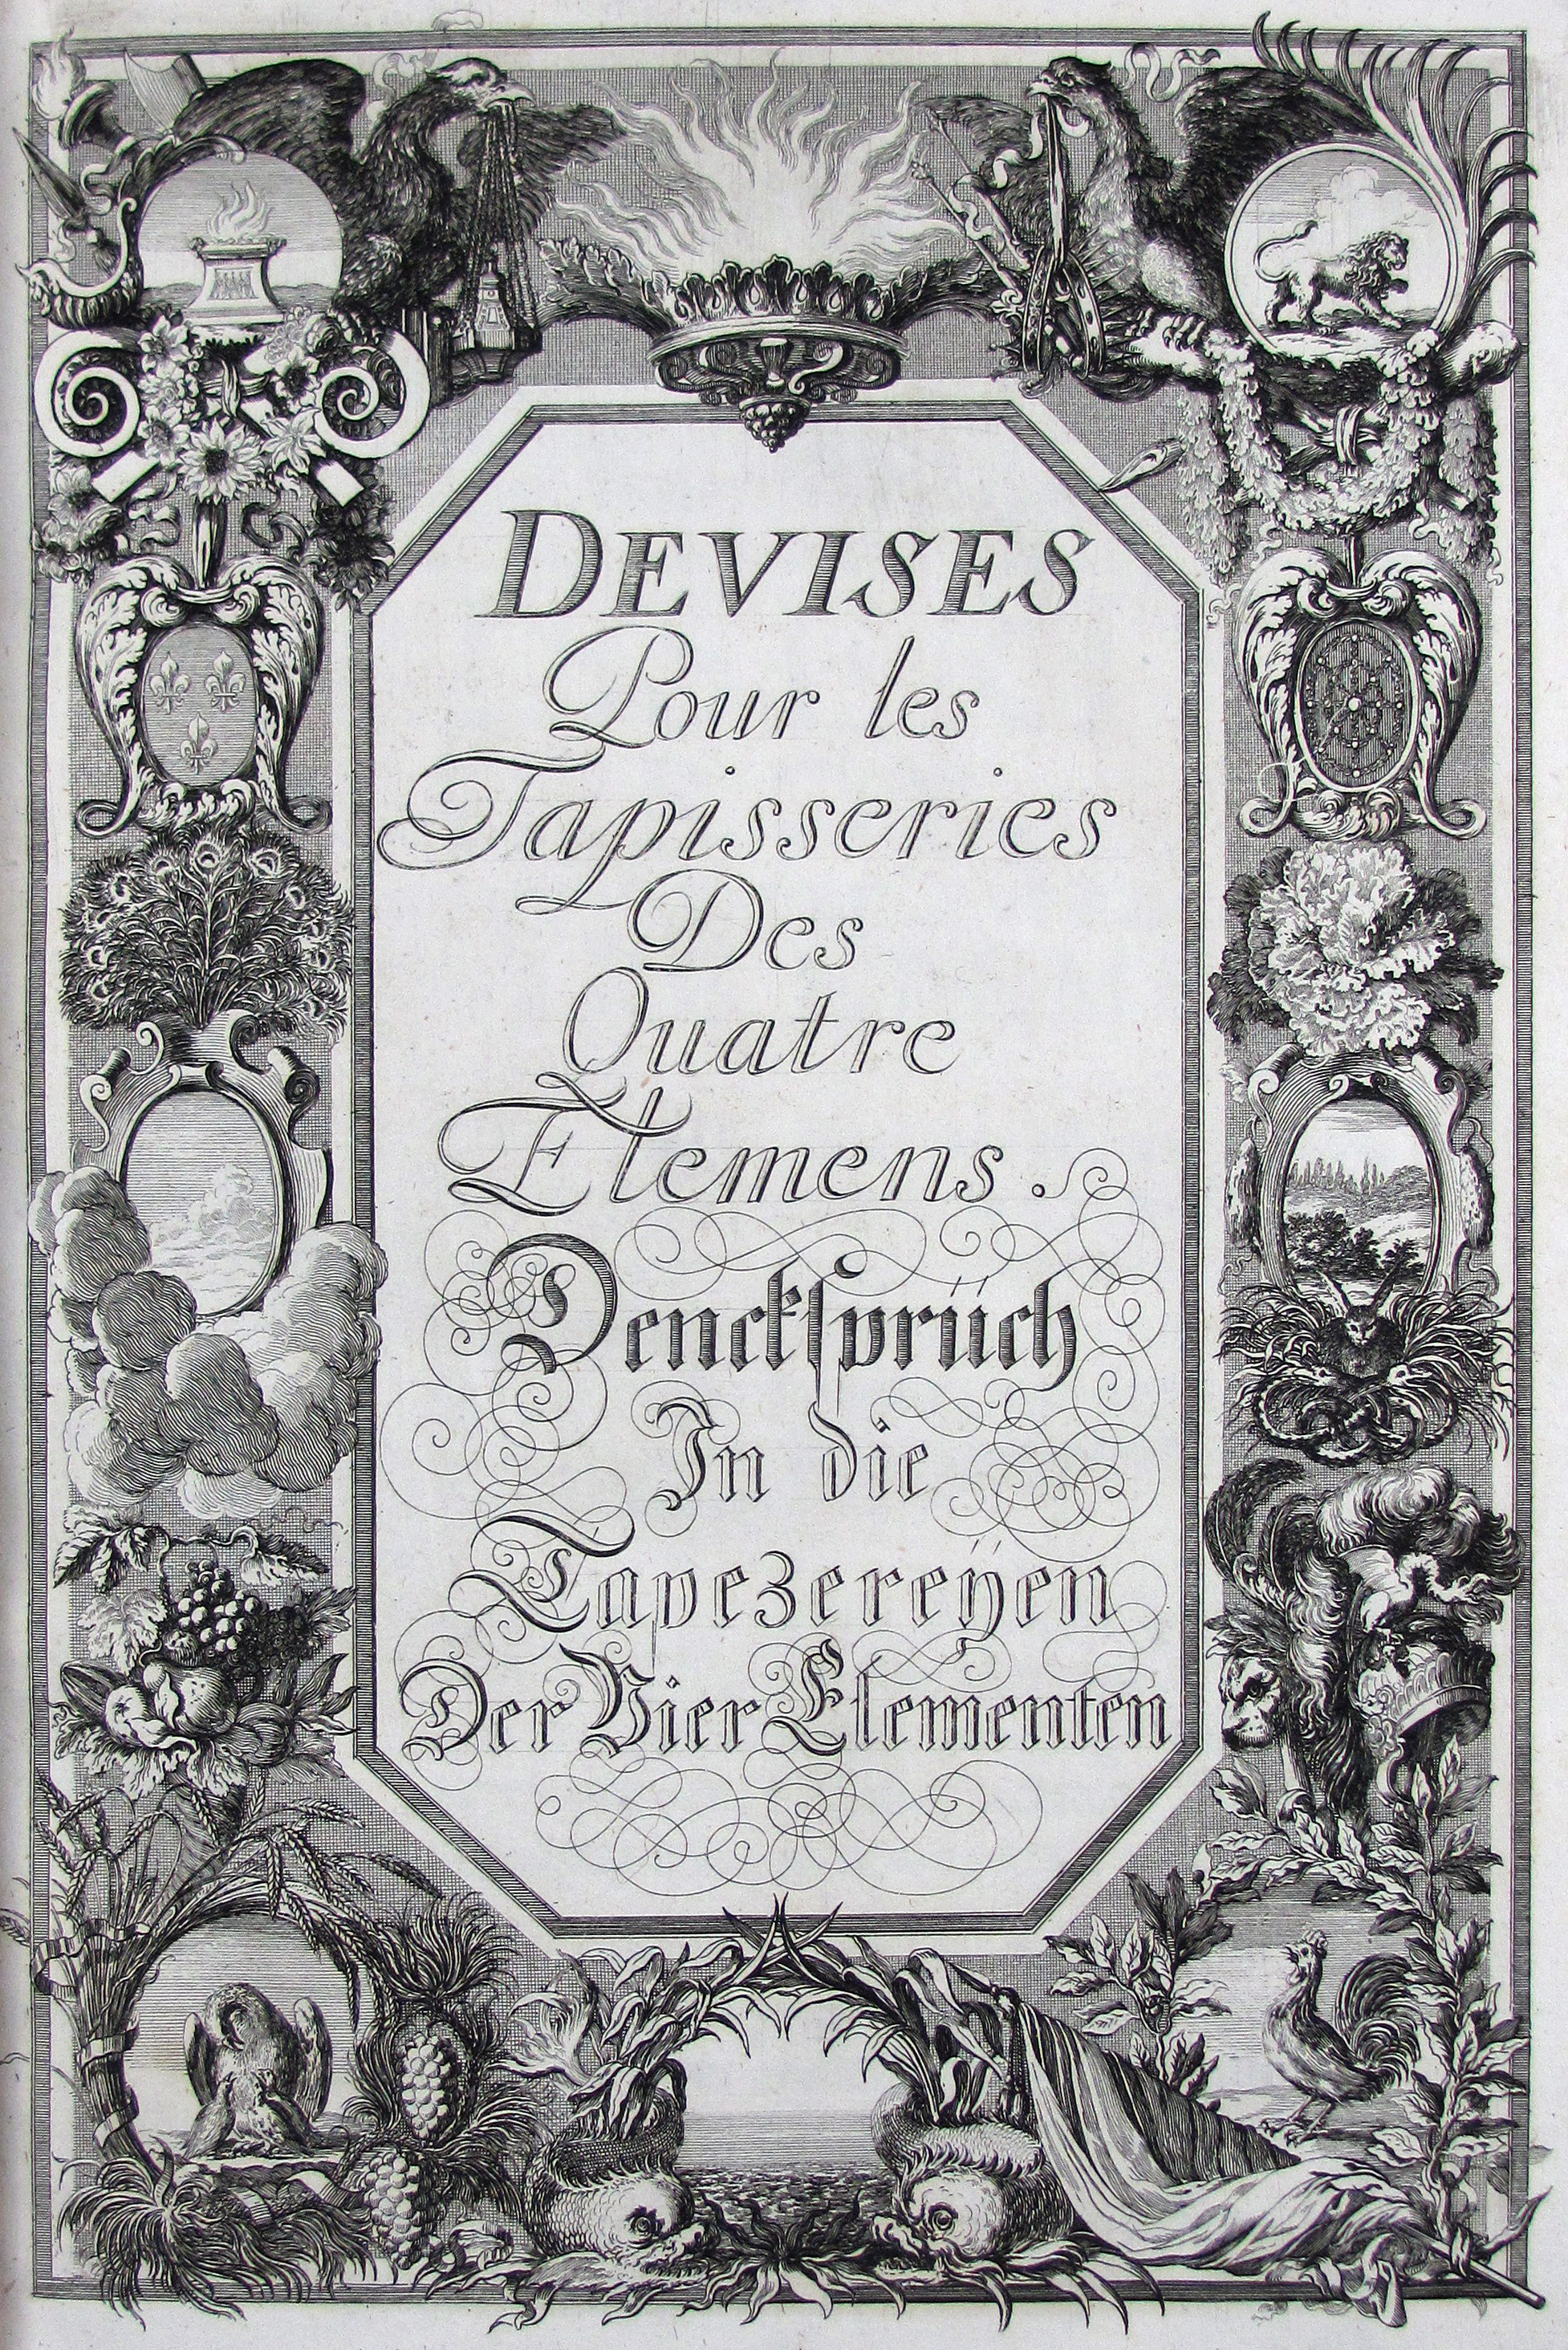 DEVISES
Pour les
Tapisseries
Des
Quatre
Elemens.
Denckſprüch
In die
Tapezereÿen
Der Vier Elementen